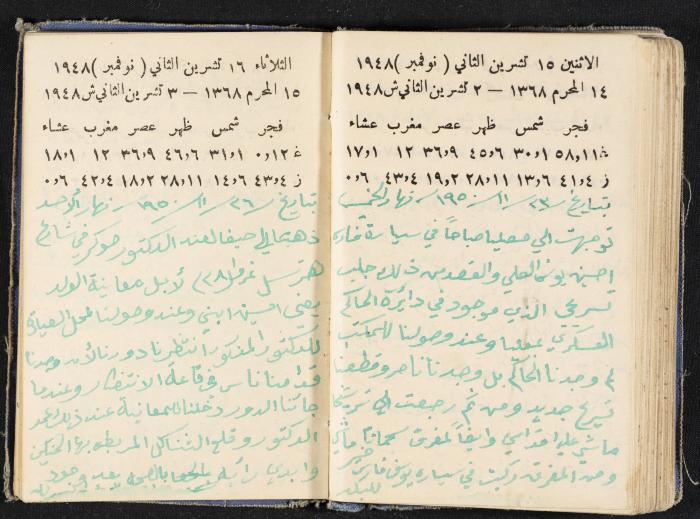 الاثنين ١٥ تشرين الثاني ( نوفمبر ) ١٩٤٨
١٤ المحرم ١٣٦٨ — ٢ تشرين الثاني ش ١٩٤٨
فجر شمس ظهر عصر مغرب عشاء
غ ١١و٥٨ ١و٣٠ ٦و٤٥ ٩و٣٦ ١٢ ١و١٧
ز ٤و٤١ ٦و١٣ ١١و٢٨ ٢و١٩ ٤و٤٣ ٦و٠
بتاريخ ٢٣ / ١١ / ١٩٥٠ نهار الخميس
توجهت الى صباحاً في سيارة
احسن يونس العلي والقصد من ذلك جلب
تسريحي الذي موجود في دائرة الحاكم
العسكري وعند وصولنا للمكتب
لم وجدنا الحاكم بل وجدنا ناصر وقطعنا
تسريح جديد ومن ثم رجعت الى ترشيحا
ماشي على اقدامي وايضاً لمفرق ماشي
ومن المفرق ركبت في سيارة يونس فارس
للبلد
الثلاثاء ١٦ تشرين الثاني ( نوفمبر ) ١٩٤٨
١٥ المحرم ١٣٦٨ — ٣ تشرين الثاني ش ١٩٤٨
فجر شمس ظهر عصر مغرب عشاء
غ ١٢و٠ ١و٣١ ٦و٤٦ ٩و٣٦ ١٢ ١و١٨
ز ٤و٤٣ ٦و١٤ ١١و٢٨ ٢و١٨ ٤و٤٢ ٦و٠
بتاريخ ٢٦ / ١١ / ١٩٥٠ نهار الأحد
ذهبنا الى حيفا لعند الدكتور في شارع
هرتسل لأجل معاينة الولد
يعني ابني وعند وصولنا لمحل العيادة
للدكتور المذكور انتظرنا دورنا لأن وجدنا
قدامنا ناس في قاعة الانتظار وعندما
جائنا الدور دخلنا للمعاينة عند ذلك عمد
الدكتور وقلع الشاكل المربطه بها
وابدى رأيه بعد وجود